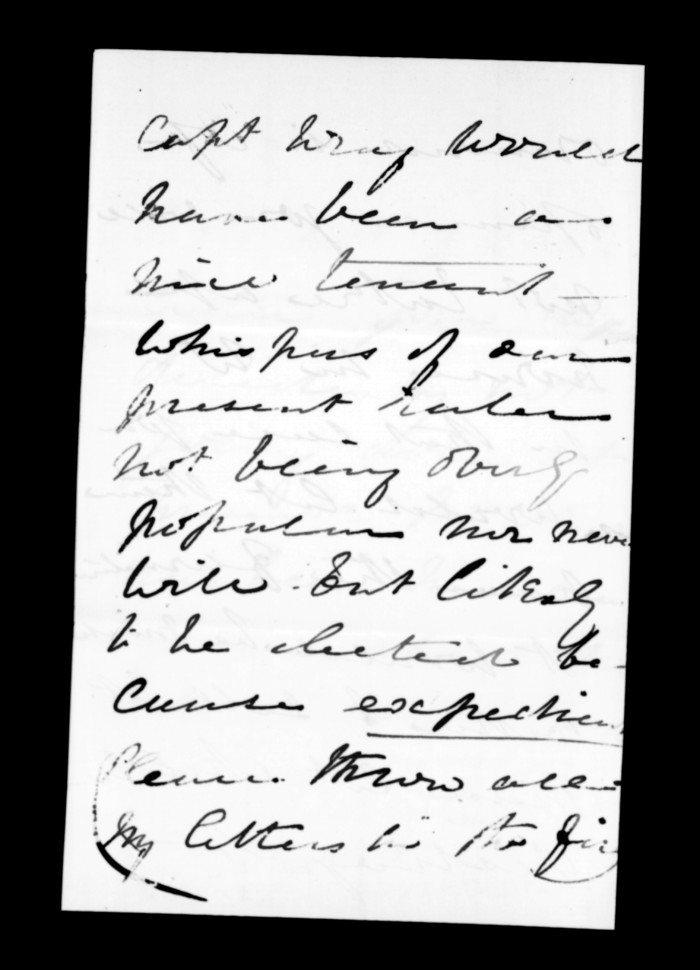 Capt Wray would
have been a
nice tenant
whispers of our
present ruler
not being overly
popular nor never
will. but likely
to be elected be-
cause expedient
Please throw all
my letters in the fire